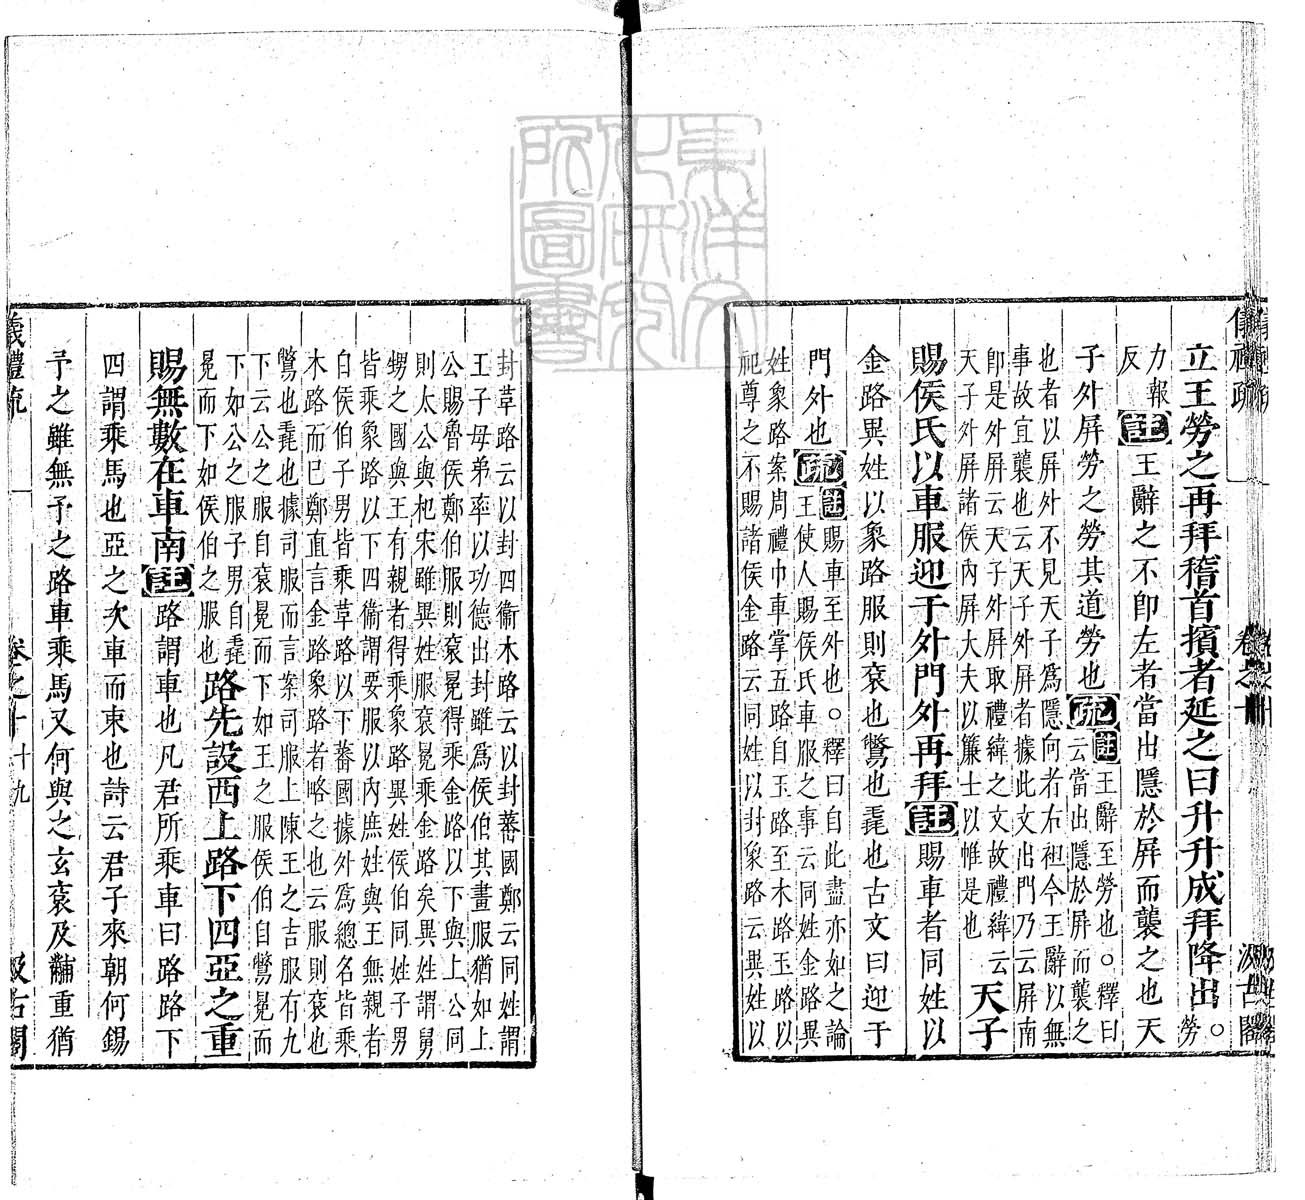 立王勞之再拜稽首擯者延之曰升升成拜降出○勞
力報
反
註王辭之不即左者當出隱於屏而襲之也天
子外屏勞之勞其道勞也疏
註王辭至勞也○釋曰
云當出隱於屏而襲之
也者以屏外不見天子爲隱向者右袒今王辭以無
事故宜襲也云天子外屏者據此文出門乃云屏南
即是外屏云天子外屏取禮緯之文故禮緯云
天子外屏諸侯內屏大夫以簾士以帷是也
天子
賜侯氏以車服迎于外門外再拜註賜車者同姓以
金路異姓以象路服則衮也鷩也毳也古文曰迎于
門外也疏
註賜車至外也○釋曰自此盡亦如之論
王使人賜侯氏車服之事云同姓金路異
姓象路案周禮巾車掌五路自玉路至木路玉路以
祀尊之不賜諸侯金路云同姓以封象路云異姓以
封革路云以封四衞木路云以封蕃國鄭云同姓謂
王子母弟率以功德出封雖爲侯伯其畫服猶如上
公賜魯侯鄭伯服則衮冕得乘金路以下與上公同
則太公與杞宋雖異姓服衮冕乘金路矣異姓謂舅
甥之國與王有親者得乘象路異姓侯伯同姓子男
皆乘象路以下四衞謂要服以內庶姓與王無親者
自侯伯子男皆乘革路以下蕃國據外爲總名皆乘
木路而已鄭直言金路象路者略之也云服則衮也
鷩也毳也據司服而言案司服上陳王之吉服有九
下云公之服自衮冕而下如王之服侯伯自鷩冕而
下如公之服子男自毳
冕而下如侯伯之服也
路先設西上路下四亞之重
賜無數在車南註路謂車也凡君所乘車曰路路下
四謂乘馬也亞之次車而東也詩云君子來朝何錫
予之雖無予之路車乘馬又何與之玄衮及黼重猶
儀禮疏
卷之十
十九
汲古閣